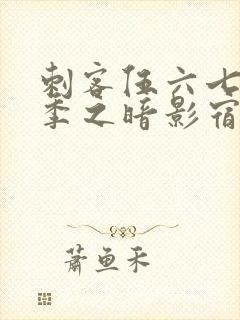 刺客伍六七
季之暗影宿
萧鱼禾